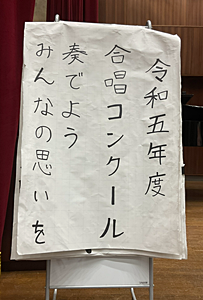 令和五年度
合唱コンクール
奏でよう
みんなの思いを